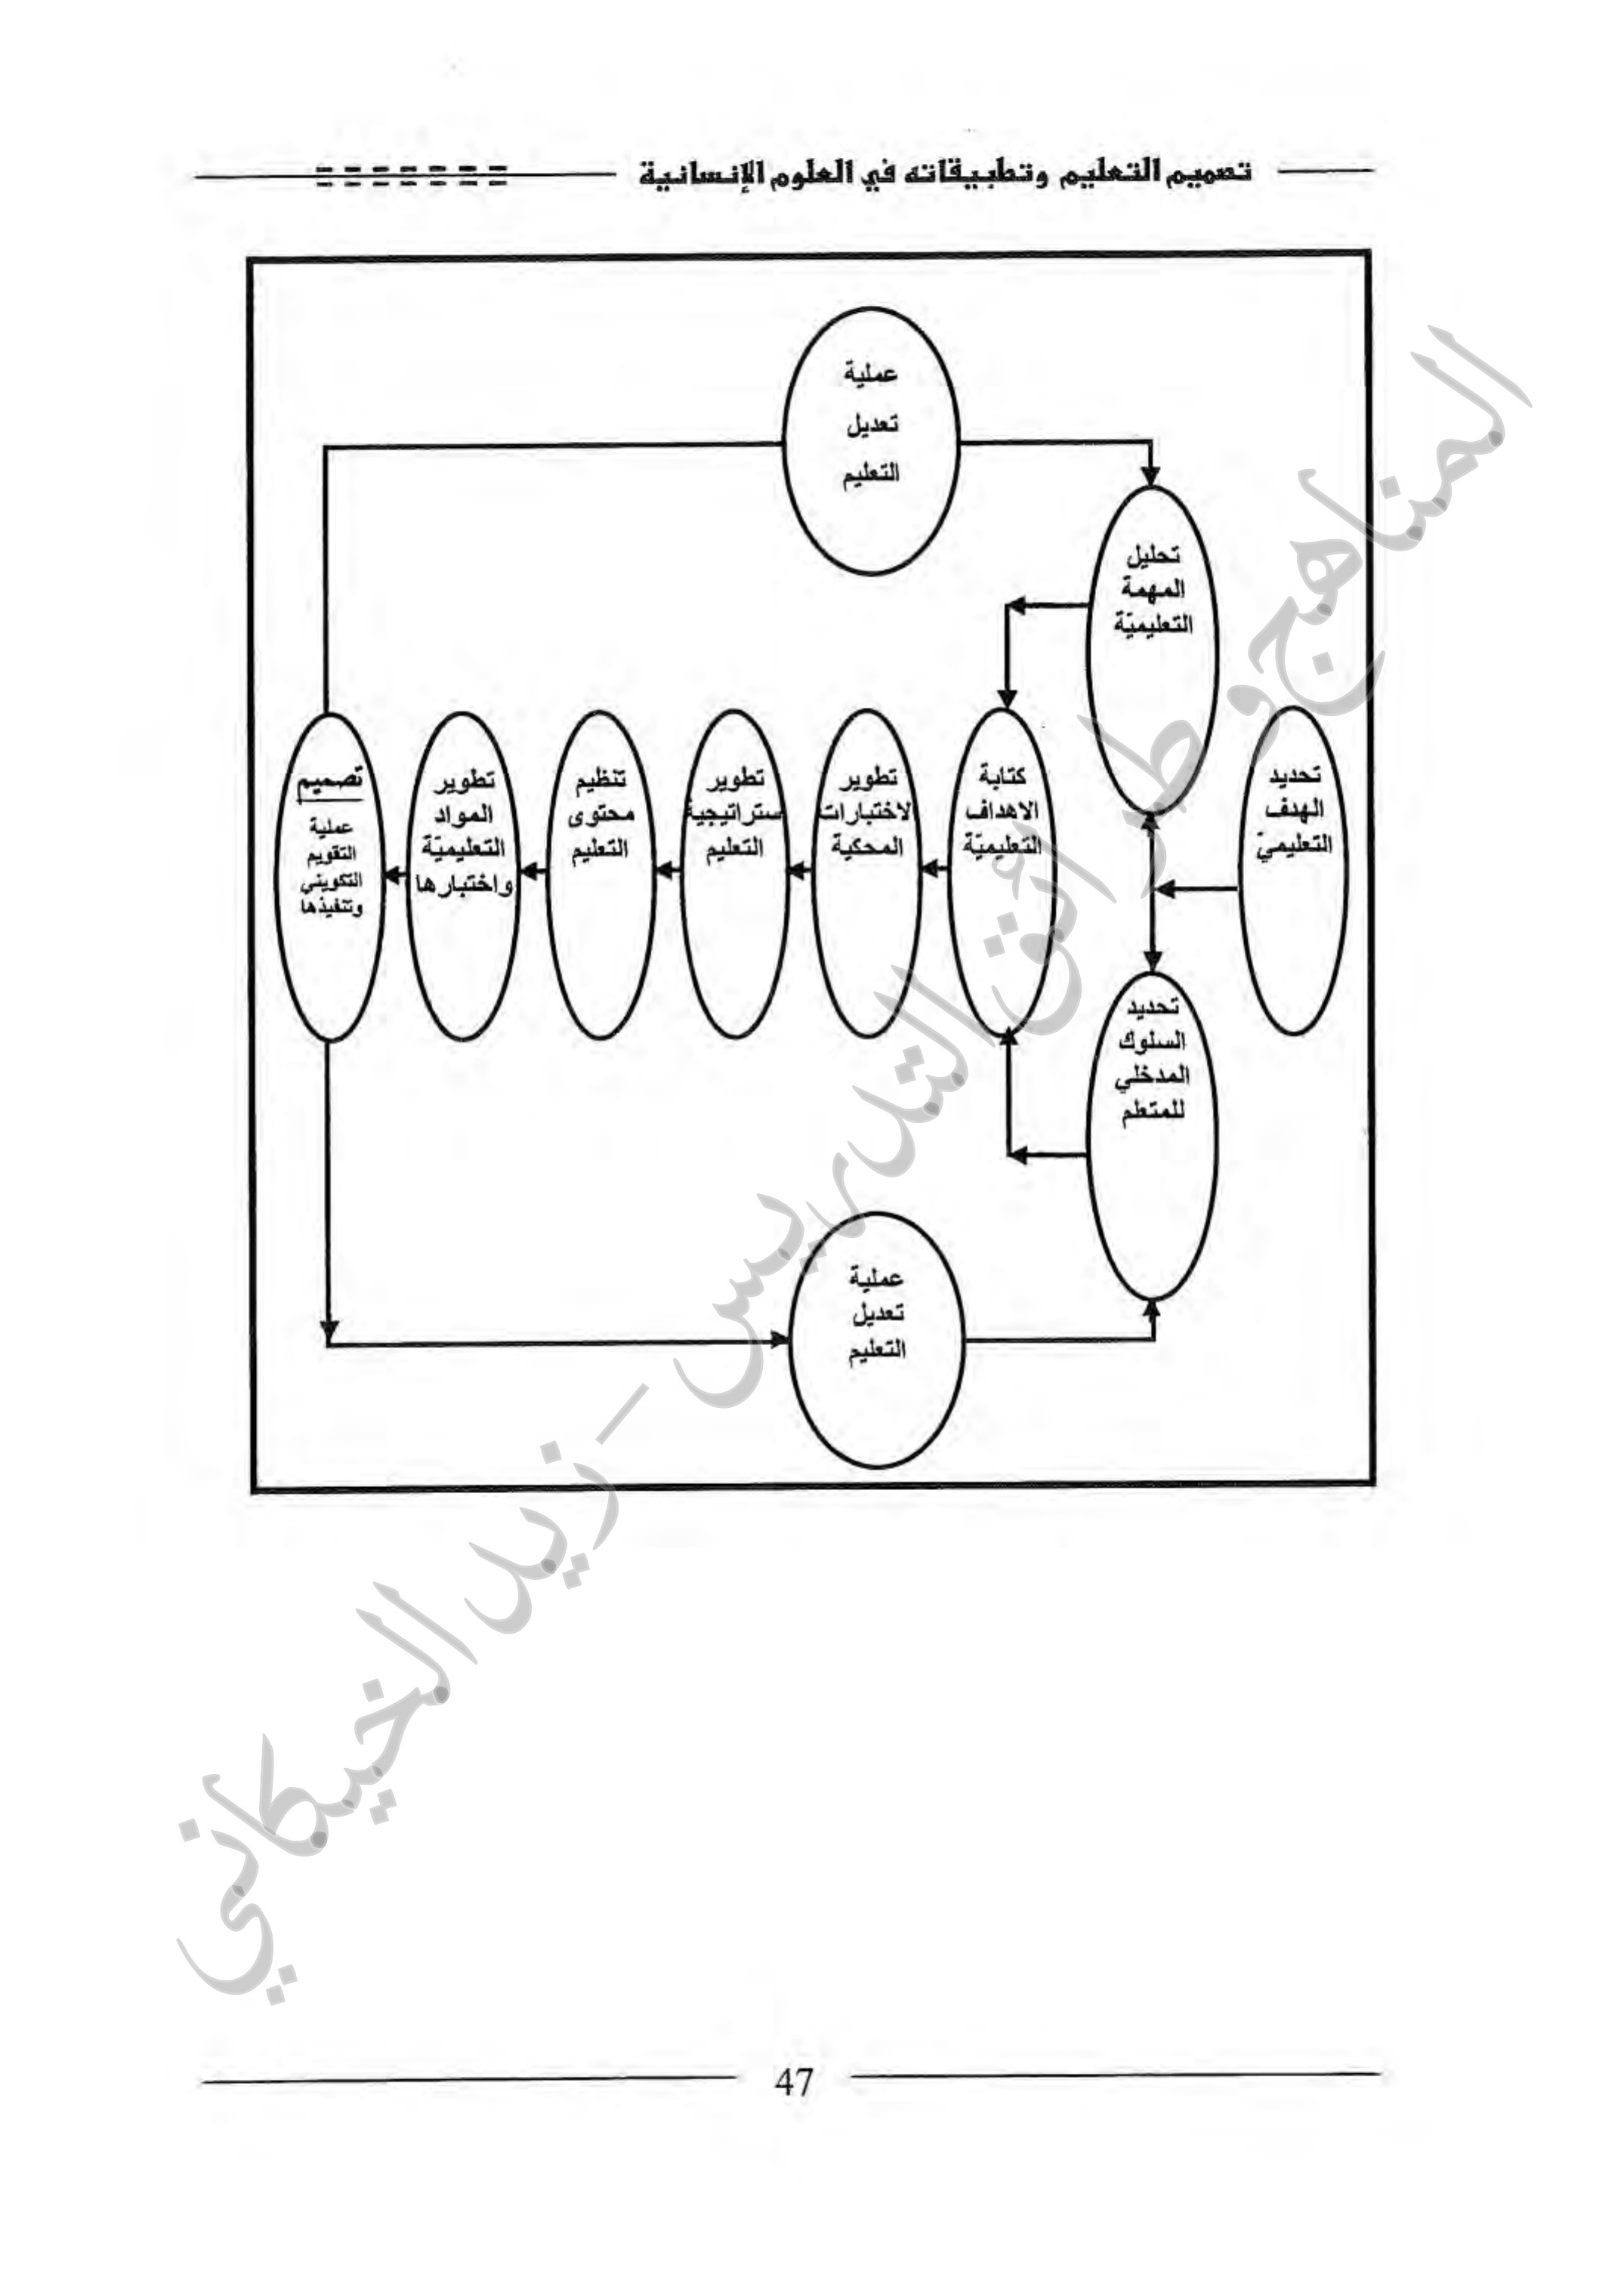 تصميم التعليم وتطبيقاته في العلوم الإنسانية
عملية
تعديل
التعليم
تحليل
المهمة
التعليميّة
تحديد
الهدف
التعليميّ
كتابة
الاهداف
التعليميّة
تطوير
لاختبارات
المحكية
تطوير
ستراتيجية
التعليم
تنظيم
محتوى
التعليم
تطوير
المواد
التعليميّة
واختبارها
تصميم
عملية
التقويم
التكويني
وتنفيذها
تحديد
السلوك
المدخلي
للمتعلم
عملية
تعديل
التعليم
المناهج وطرائق التدريس - زيد الخيكاني
47